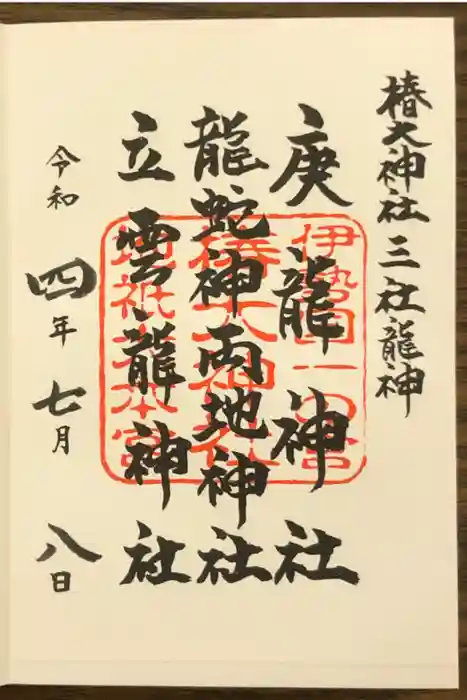 椿大神社 三社龍神
庚龍神社
龍蛇神両地神社
立雲龍神社
令和四年七月八日
伊勢国一の宮
椿大神社